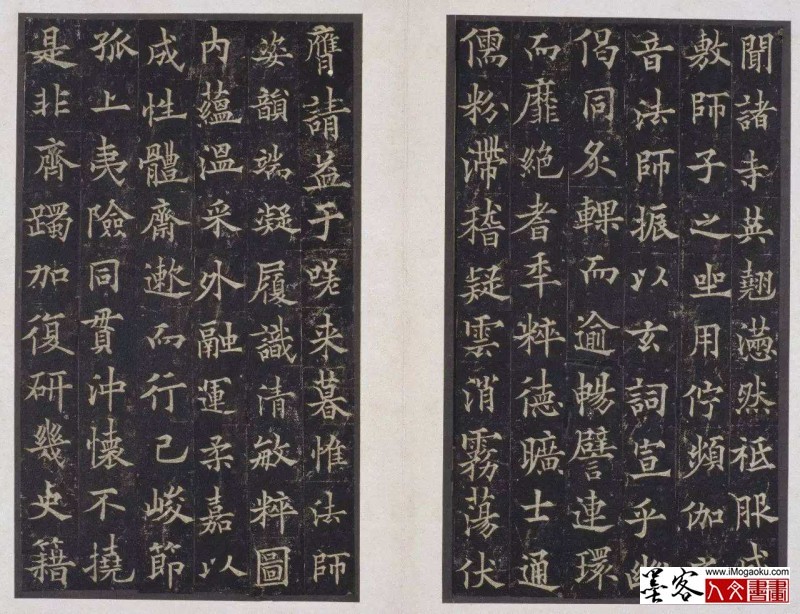 聞諸寺英翹懣然祗服
敷師子之㘴用佇頻伽
音法師振以玄詞宣乎幽
偈同炙輠而逾暢譬連環
而靡絕耆秊粹德曠士通
儒粉滯稽疑雲消霧蕩伏
膺請益于嗟来暮惟法師
姿韻端凝履識清敏粹圖
内蘊溫采外融運柔嘉以
成性體齋遬而行己峻節
孤上夷險同貫沖懷不撓
是非齊躅加復研幾史籍
www.iMogaoku.com
墨客